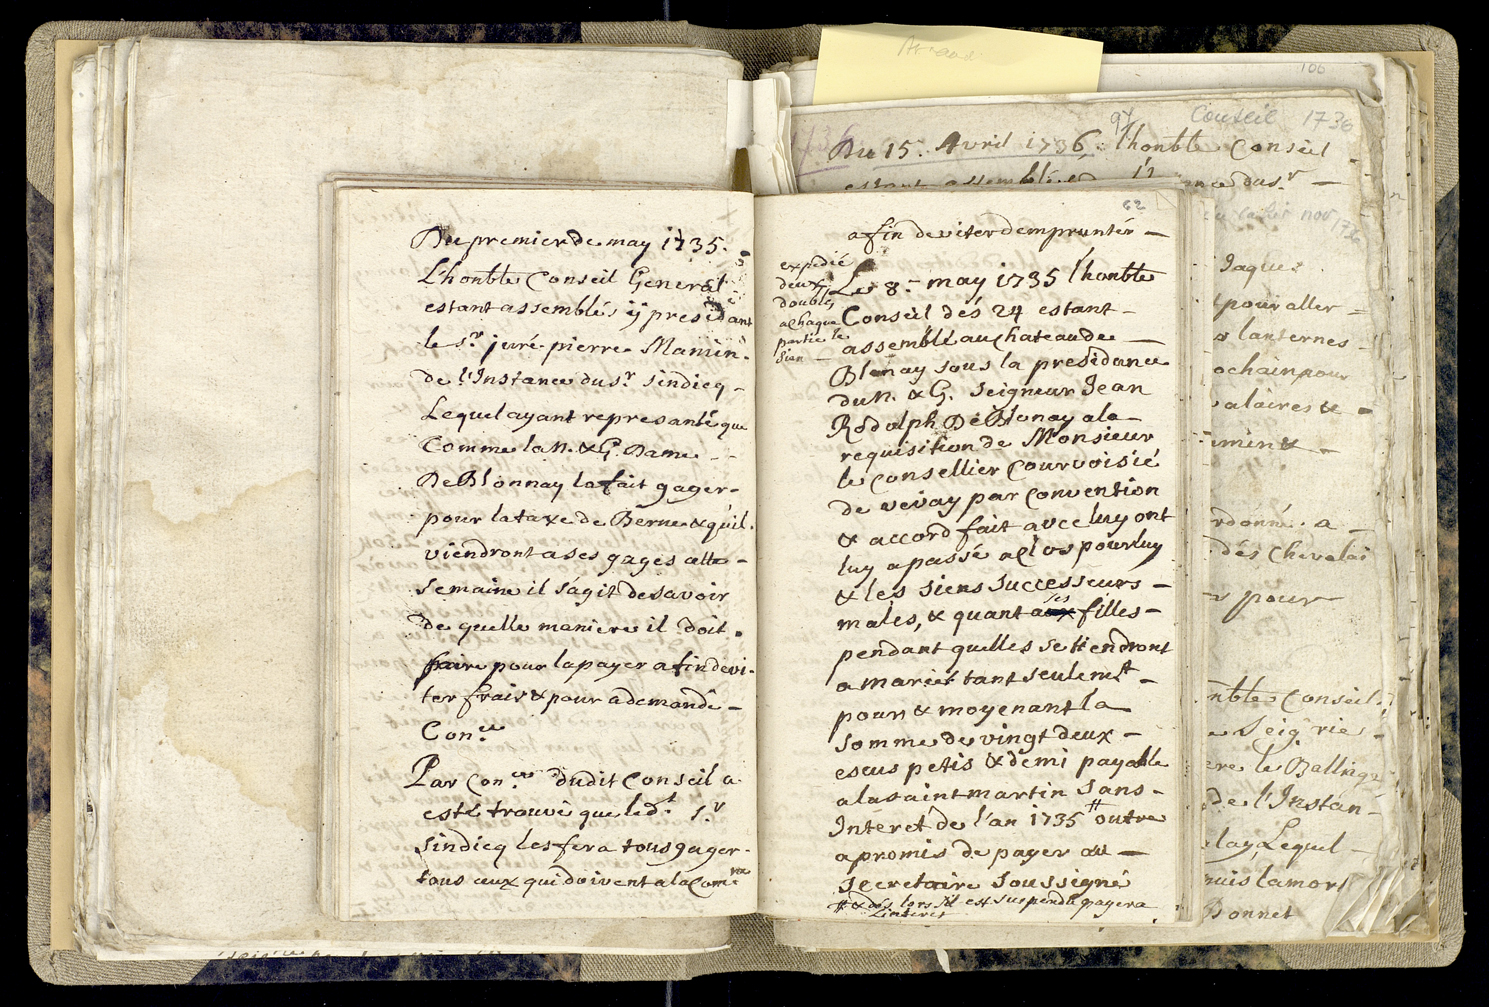 Du premier de may 1735.
L'honble Conseil General
estant assemblés ÿ presidant
le Sr. juré pierre Mamin.
de l'Instance du Sr. Sindicq -
Lequel ayant represanté que
Comme la N. & G. Dame - -
De Blonnay la fait gager -
pour la taxe de Berne & qu'il
viendront a ses gages cette -
semaine il s'agit de savoir
de quelle maniere il doit
faire pour la payer afin devi-
ter frais & pour a demandé -
Con.ce
Par Con.ce dudit Conseil a
esté trouvé que led.t S.r
Sindicq les fera tous gager -
tous ceux qui doivent a la Com.
62
afin deviter demprunter -
expedié
deux
doubles
a chaque
partie le
sien -
Le 8.e may 1735 l'honble
Conseil dés 24 estant -
assemblé au chateau de -
Blonay sous la presidance
du N. & G. Seigneur Jean
Rodolph De Blonay a la -
requisition de Monsieur
le Consellier Courvoisié
de vevay par convention
& accord fait avec luy ont
luy a passé a Clos pour luy
& les siens successeurs -
males, & quant aux ses filles -
pendant quelles se tiendront
a marier tant seulemt -
pour & moyenant la
somme de vingt deux -
escus petis & demi payable
a la saint martin sans -
Interet de l'an 1735 # outre
a promis de payer au -
secretaire soussigné
# & dés lors s'il est suspendu payera
L'interet
106
97
Conseil 1736
1736
Du 15. Avril 1736. l'honble Conseil
estant assemblé
nce du S.r -
nov 1736
Jaques
pour aller =
lanternes -
ochain pour
alaires & -
rdonné. a -
dés Chevalai
pour
nble Conseil.
Seig.rie -
le Balliage
de l'Instan-
Lequel -
puis la mort
Bonnet